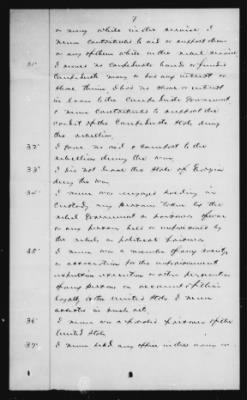 7
or navy while in the service I
never contributed to aid or support them
or any of them while in the rebel service
31" I owned no Confederate bonds or
Confederate money or had any interest or
share therein I had no share or interest
in loans to the Confederate Government
I never contributed to support the
credit of the Confederate States during
the rebellion
32" I gave no aid or comfort to the
rebellion during the war
33" I did not leave the State of Georgia
during the war
34" I never was engaged holding in
custody any persons taken by the
rebel Government as prisoners of war
or any persons held or imprisoned by
the rebels as political prisoners
35" I never was a member of any society
or association for the imprisonment
expulsion execution or other persecution
of any persons on account of their
loyalty to the United States I never
assisted in such acts
36" I never was a prisoner of the
United States
37" I never held any office